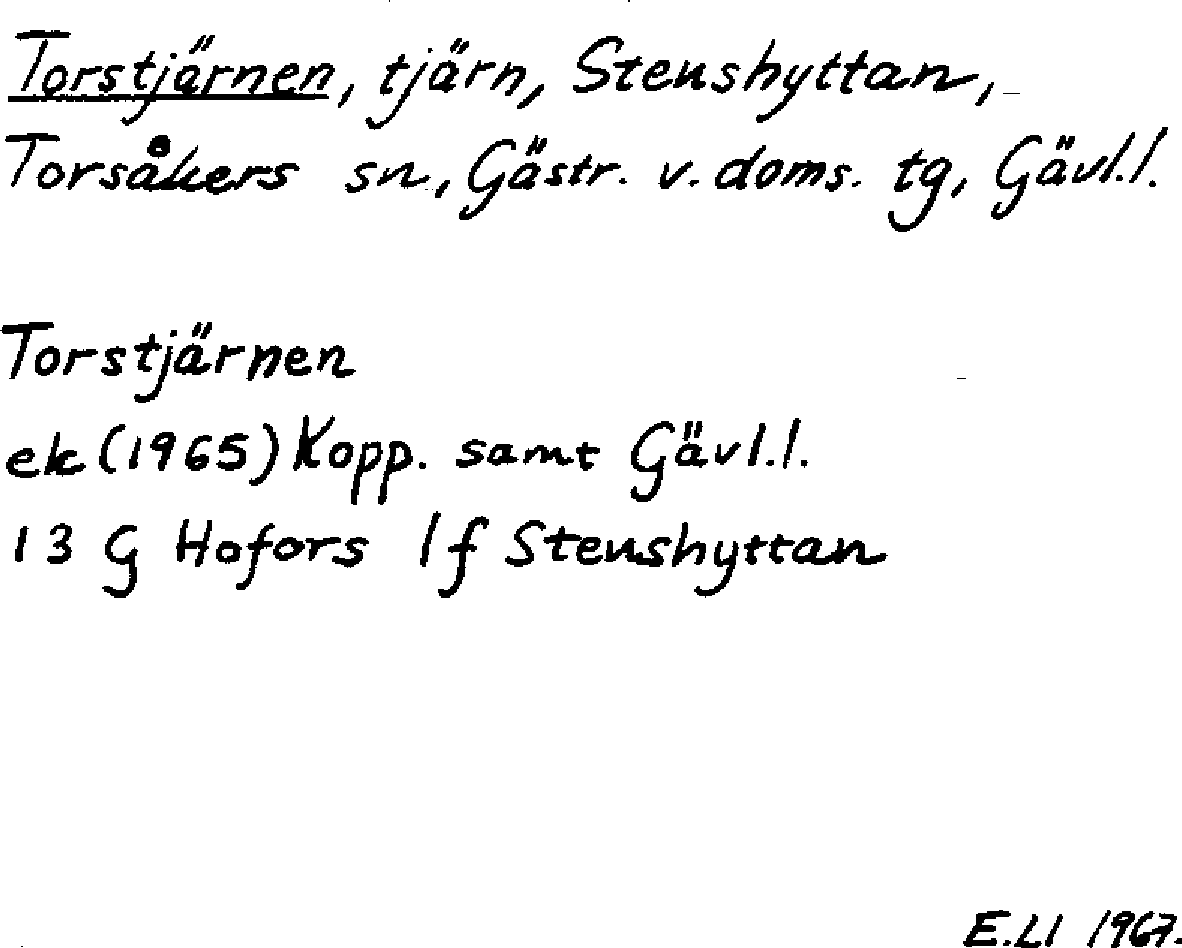 Torstjärnen, tjärn, Stenshyttan,
Torsåkers sn, Gästr. v. doms. tg, Gävl.l.
Torstjärnen
ek (1965) Kopp. samt Gävl.l.
13 G Hofors 1f Stenshyttan
E.Ll 1967.